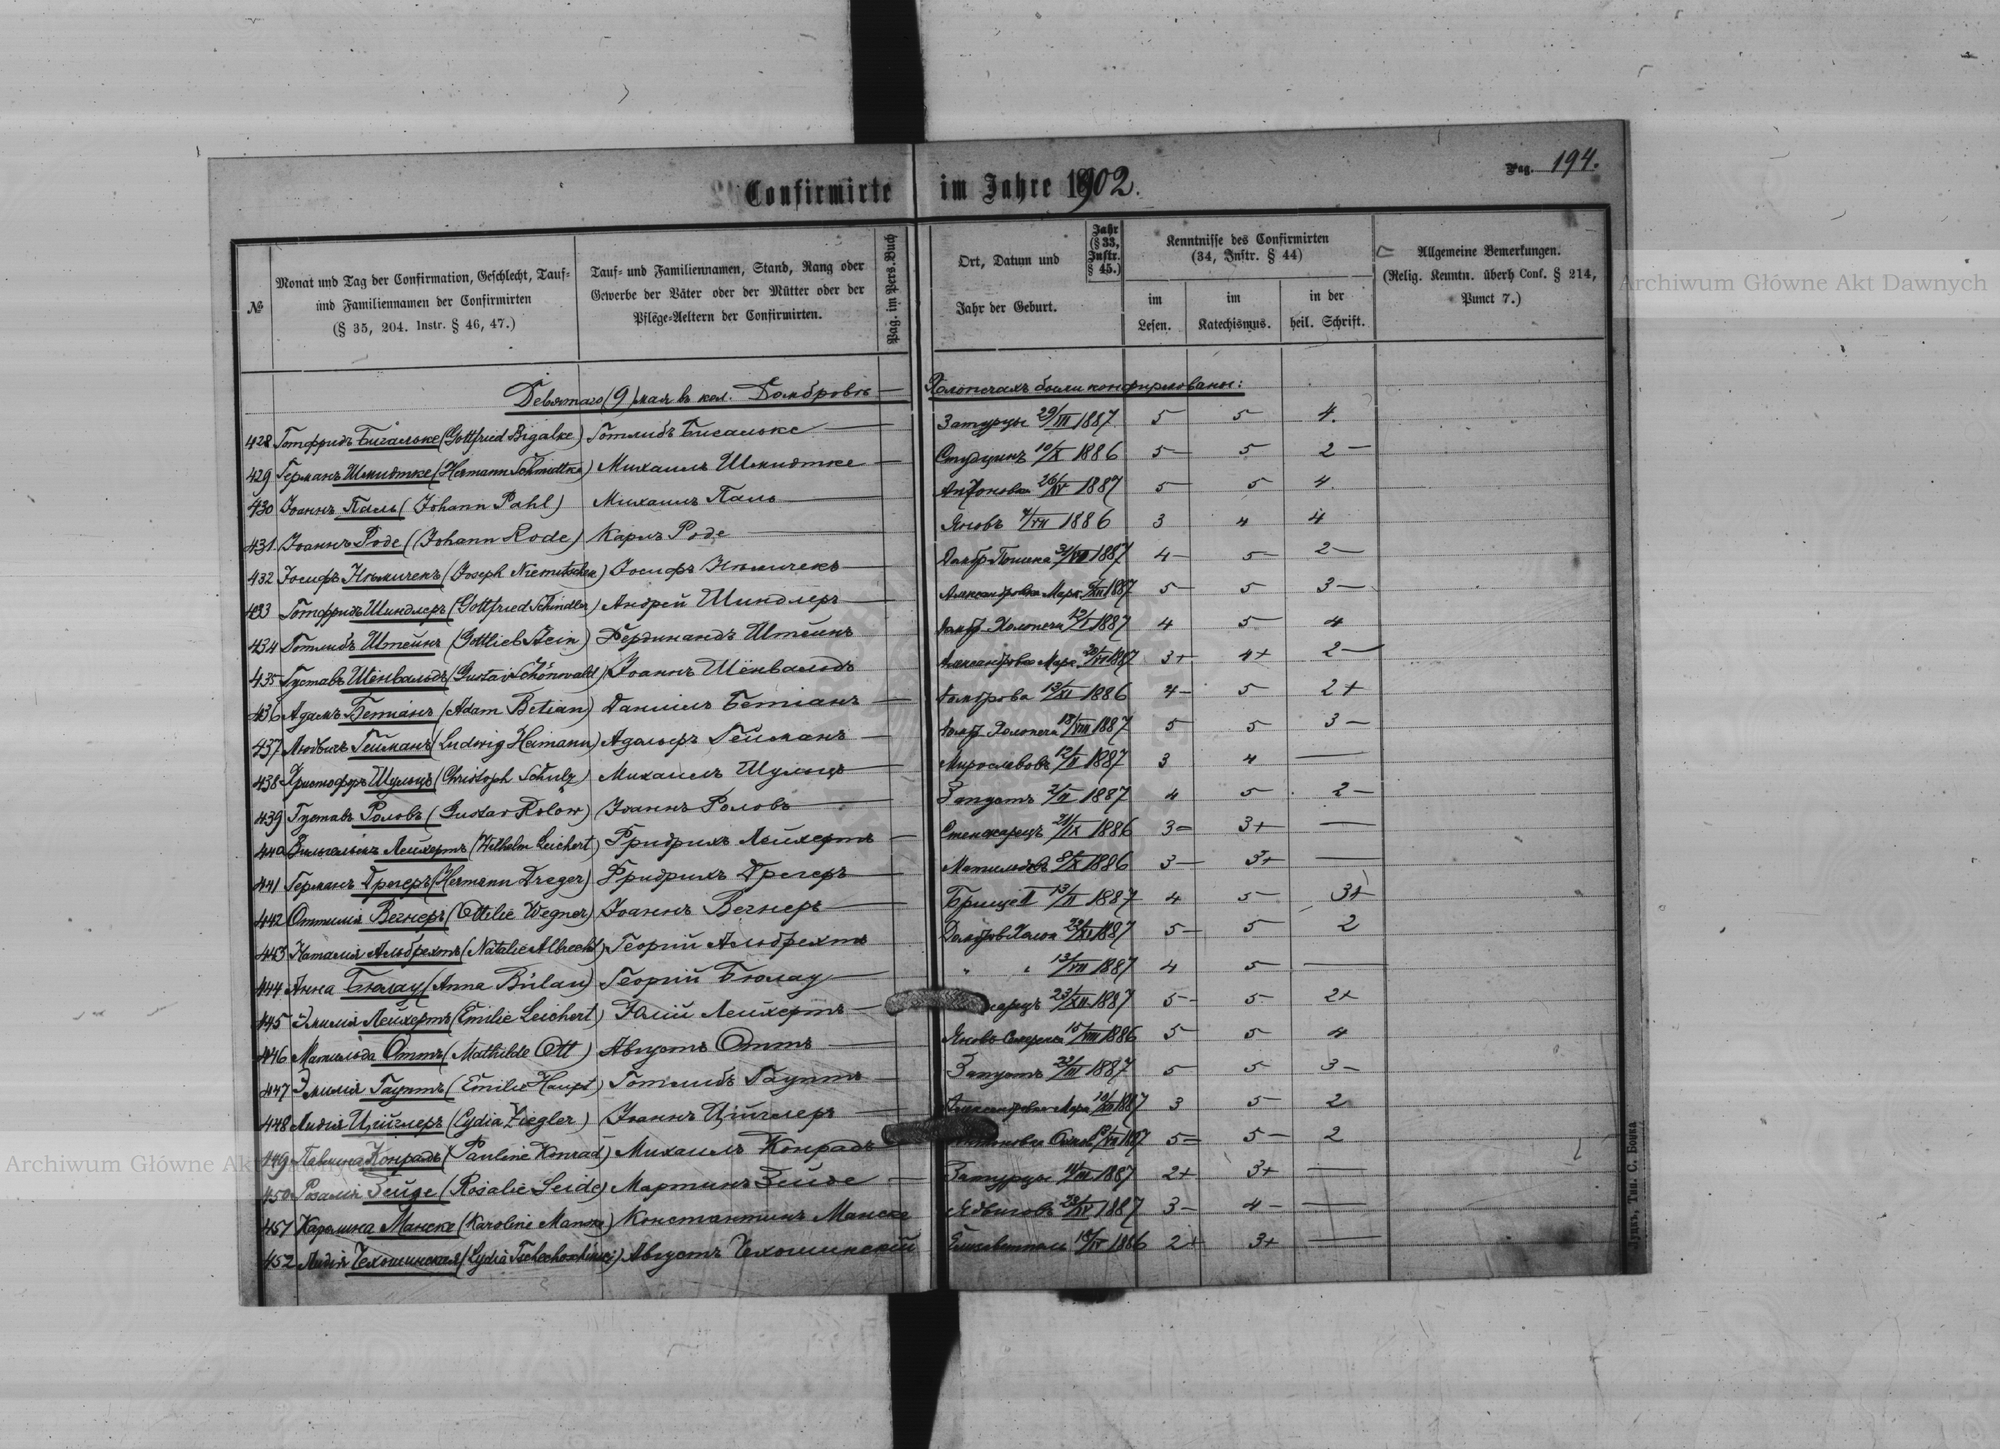 Confirmirte im Jahre 1902.
Pag. 194.
№
Monat und Tag der Confirmation, Geschlecht, Tauf-
und Familiennamen der Confirmirten
(§ 35, 204. Instr. § 46, 47.)
Tauf- und Familiennamen, Stand, Rang oder
Gewerbe der Väter oder der Mütter oder der
Pflege-Aeltern der Confirmirten.
Pag. im Pers.Buch
Ort, Datum und
Jahr der Geburt.
Jahr
(§ 33,
Instr.
§ 45.)
Kenntnisse des Confirmirten
(34, Instr. § 44)
im
Lesen.
im
Katechismus.
in der
heil. Schrift.
Allgemeine Bemerkungen.
(Relig. Kenntn. überh Conf. § 214,
Punct 7.)
Девятаго (9) мая въ кол. Домбровѣ — Холопечахъ были конфирмованы:
428 Готфридъ Бигальке (Gottfried Bigalke) Готлибъ Бигальке — Затурцы 29/III 1887 5 5 4.
429 Германъ Шмидтке (Hermann Schmidtke) Михаилъ Шмидтке — 10/X 1886 5- 5 2-
430 Іоаннъ Паль (Johann Pahl) Михаилъ Паль — Антоновка 26/IV 1887 5- 5 4.
431. Іоаннъ Роде (Johann Rode) Карлъ Роде — Яновъ 4/VII 1886 3 4 4
432 Іосифъ Нѣмичекъ (Joseph Niemetschek) Іосифъ Нѣмичекъ — 1887 4- 5- 2-
433 Готфридъ Шиндлеръ (Gottfried Schindler) Андрей Шиндлеръ — Александровка Мар. 1887 5- 5 3-
434 Готлибъ Штейнъ (Gottlieb Stein) Фердинандъ Штейнъ Домбр. Холопечи 1887 4 5- 4
435 Густавъ Шёнвальдъ (Gustav Schönwald) Іоаннъ Шёнвальдъ Александровка Мар. 1887 3+ 4+ 2-
436 Адамъ Бетіанъ (Adam Betian) Даніилъ Бетіанъ — Домброва 13/XI 1886 4- 5 2+
437 Людвигъ Гейманъ (Ludwig Heimann) Адольфъ Гейманъ — Домбр. Холопечи 18/VIII 1887 5 5 3-
438 Христофоръ Шульцъ (Christoph Schulz) Михаилъ Шульцъ — 12/II 1887 3 4 —
439 Густавъ Роловъ (Gustav Rolow) Іоаннъ Роловъ — Запустъ 2/II 1887 4 5 2-
440 Вильгельмъ Лейхертъ (Wilhelm Leichert) Фридрихъ Лейхертъ — 21/IX 1886 3= 3+ —
441 Германъ Дрегеръ (Hermann Dreger) Фридрихъ Дрегеръ — 8/X 1886 3- 3+ —
442 Оттилія Вегнеръ (Ottilie Wegner) Іоаннъ Вегнеръ — Брище II 13/II 1887 4 5- 3+
443 Наталія Альбрехтъ (Natalie Albrecht) Георгій Альбрехтъ 1887 5- 5 2
444 Анна Бюлау (Anna Bülau) Георгій Бюлау — " " 13/VII 1887 4 5- —
445 Эмилія Лейхертъ (Emilie Leichert) Юлій Лейхертъ — 23/XII 1887 5- 5- 2+
446 Матильда Оттъ (Mathilde Ott) Августъ Оттъ — 15/VIII 1886 5- 5 4
447 Эмилія Гауптъ (Emilie Haupt) Готлибъ Гауптъ — Запустъ 22/III 1887 5 5 3-
448 Лидія Цiйглеръ (Lydia Ziegler) Іоаннъ Цiйглеръ — Александровка Мар. 1887 3 5- 2
449 Павлина Конрадъ (Pauline Konrad) Михаилъ Конрадъ 1887 5= 5- 2
450 Розалія Зейде (Rosalie Seide) Мартинъ Зейде — Затурцы 1887 2+ 3+ —
451 Каролина Манске (Karoline Manske) Константинъ Манске Ядвиговъ 28/IV 1887 3- 4- —
452 Лидія Чехошинская (Lydia Tschechoschinski) Августъ Чехошинскій 1886 2+ 3+ —
Луцкъ, Тип. С. Бокка
Archiwum Główne Akt Dawnych
Archiwum Główne Akt